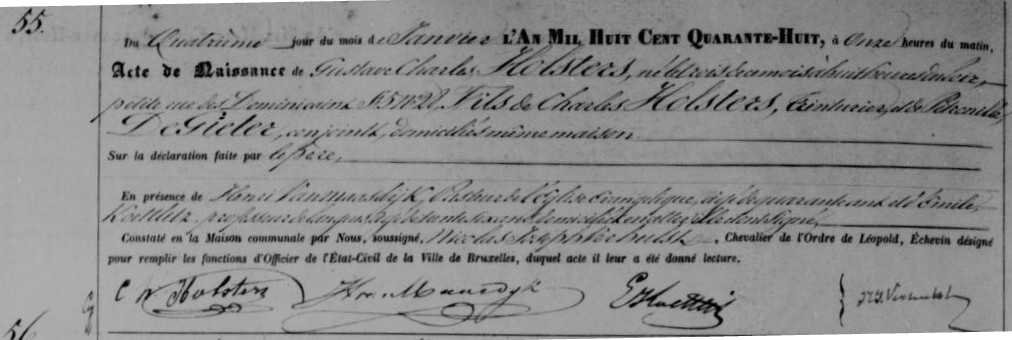 55.
Du Quatrième jour du mois de Janvier L'AN MIL HUIT CENT QUARANTE-HUIT, à Onze heures du matin,
Acte de Naissance de Gustave Charles Holsters, né le trois de ce mois à huit heures du soir,
petite rue des Dominicains, fils de Charles Holsters, teinturier, et de Petronille
De Gieter, conjoints, domiciliés même maison
Sur la déclaration faite par le père,
En présence de Henri Van Maasdijk, Pasteur de l'Eglise évangélique, âgé de quarante ans et d'Emile
professeur de langues, âgé de trente six ans, domiciliés en cette ville et ont signé,
Constaté en la Maison communale par Nous, soussigné, Nicolas Joseph Verhulst, Chevalier de l'Ordre de Léopold, Échevin désigné
pour remplir les fonctions d'Officier de l'État-Civil de la Ville de Bruxelles, duquel acte il leur a été donné lecture.
Holsters
56